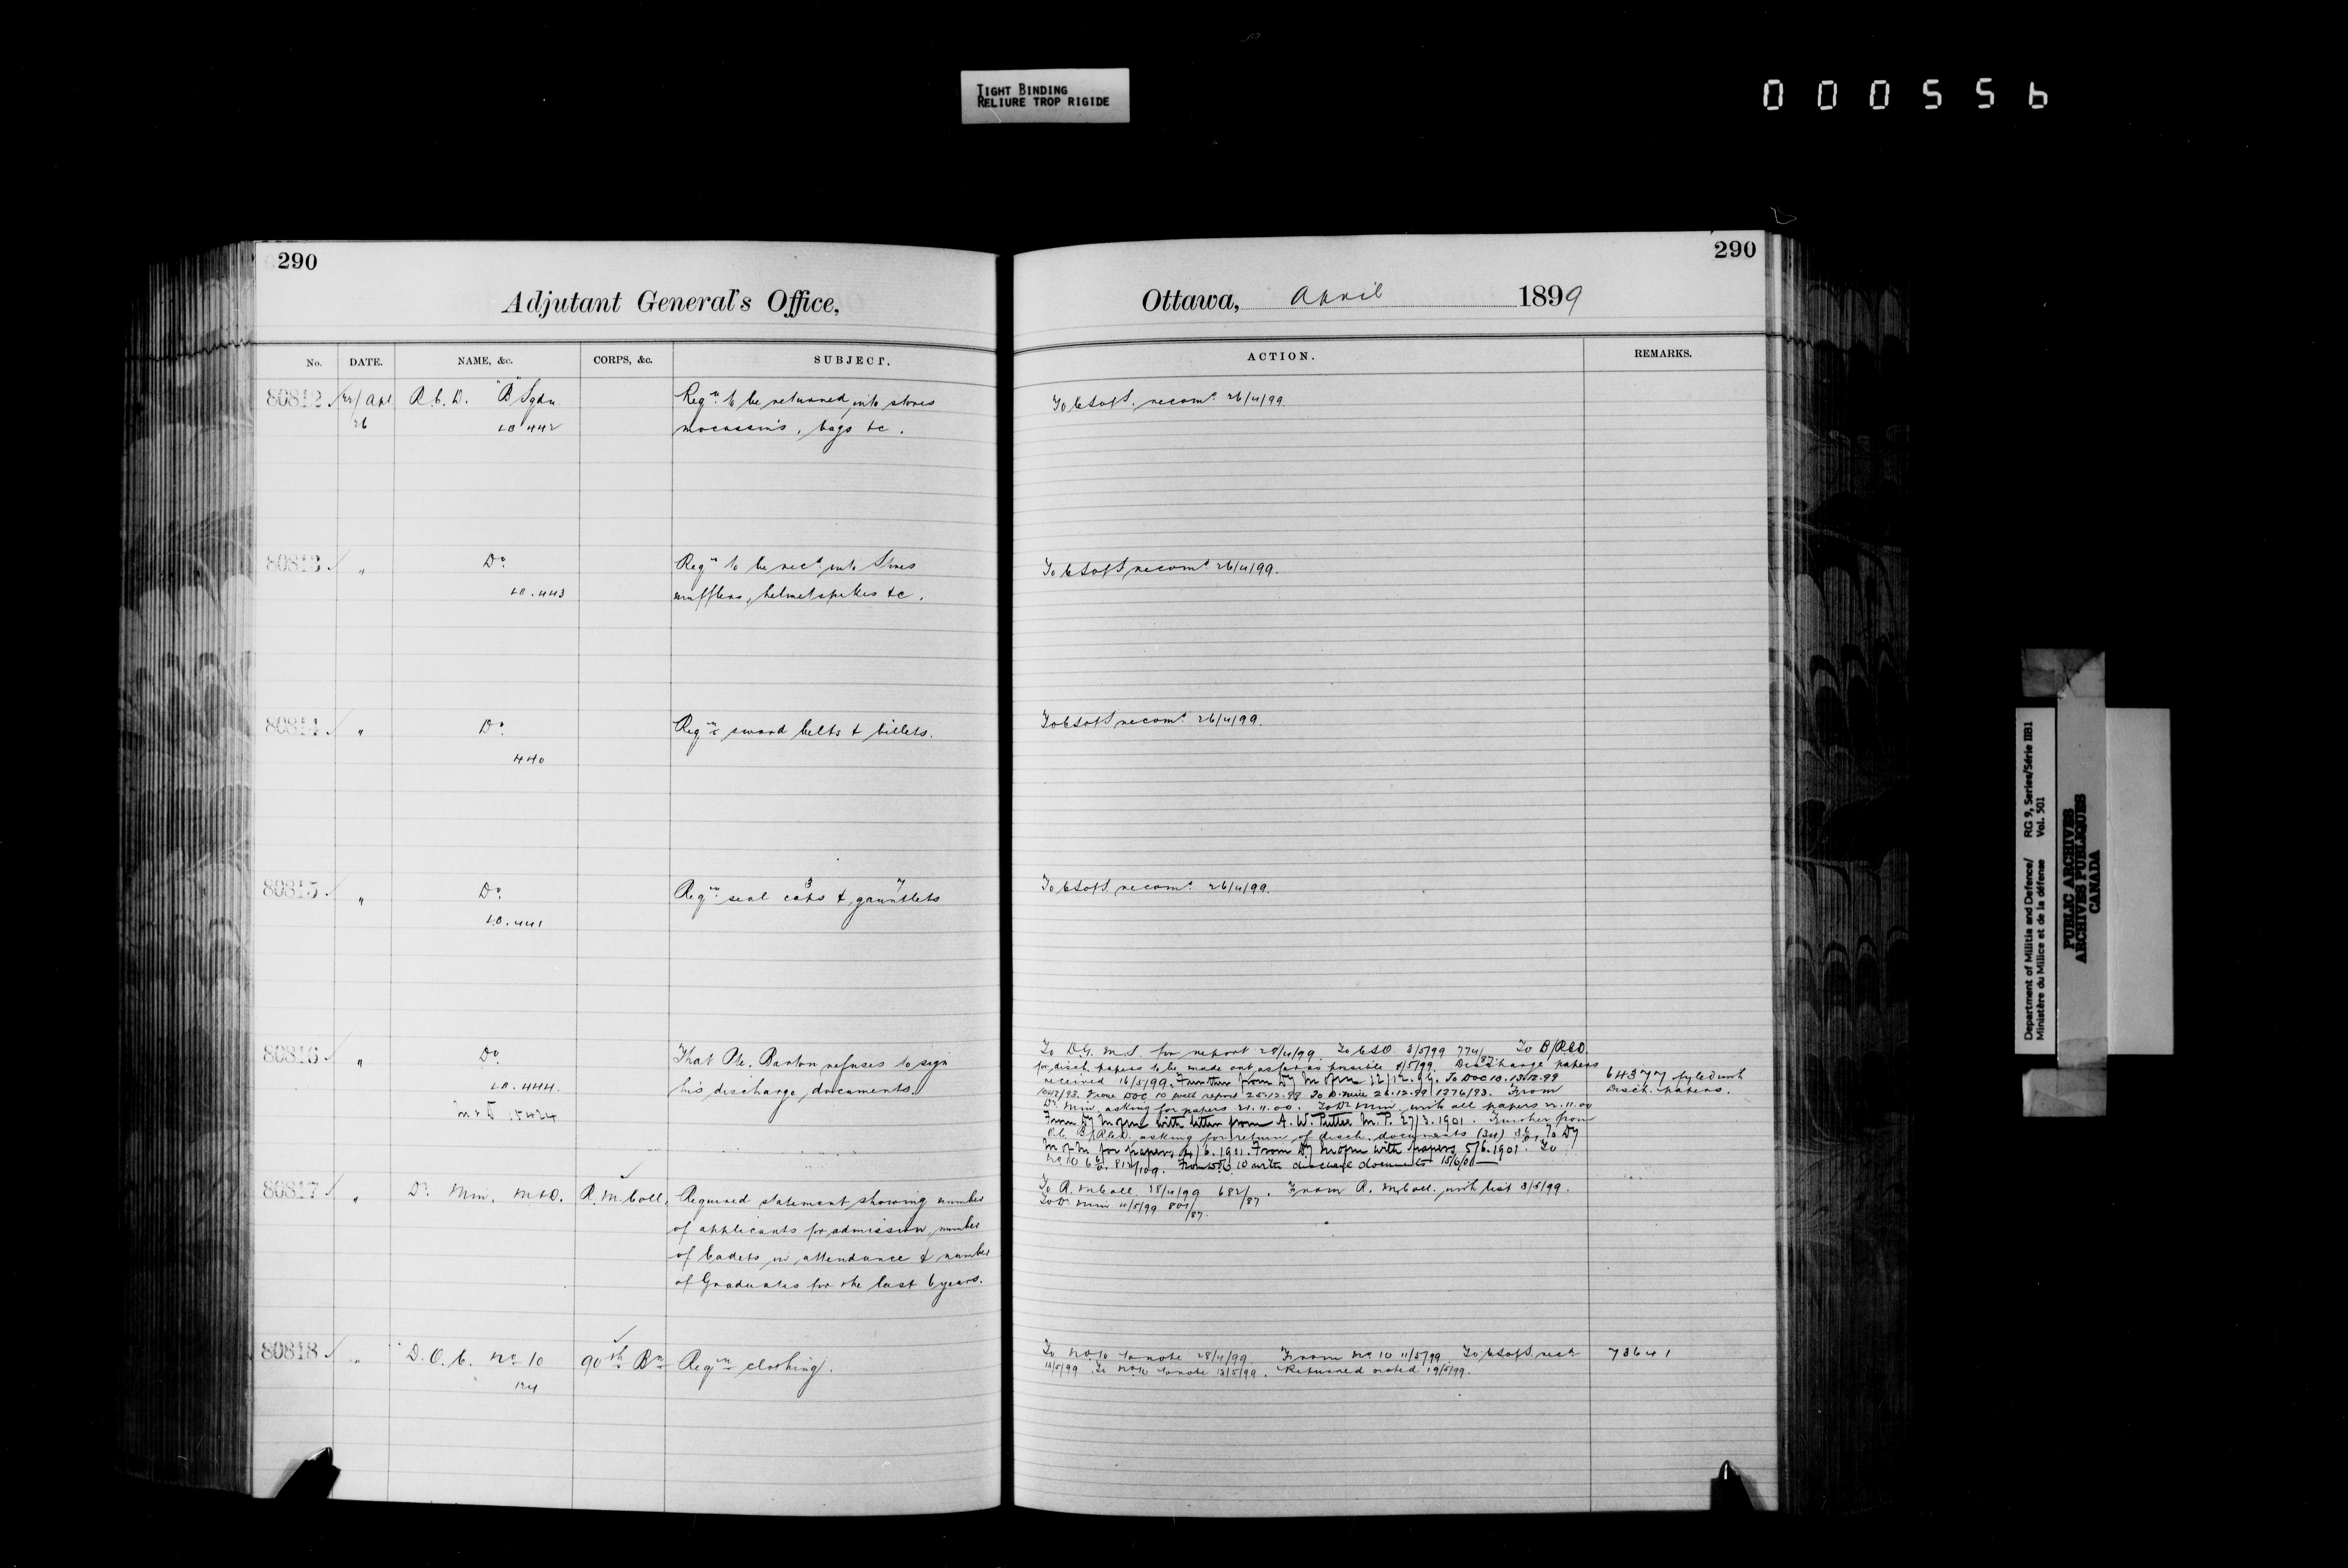 TIGHT BINDING
RELIURE TROP RIGIDE
000556
290
290
Adjutant General's Office,
Ottawa, April 1899
No. DATE. NAME, &c. CORPS, &c. SUBJECT. ACTION. REMARKS.
80812 Apl R.C.D. "B" Sqdn Reqn to be returned into stores To C S of S. recomd 26/4/99.
26 LO 442 mocassins, bags &c.
80813 " Do Reqn to be recd into Stores To C S of S recomd 26/4/99.
LO.443 mufflers, helmet spikes &c.
80814 " Do Reqn sword belts & billets. To C S of S recomd 26/4/99.
440
80815 " Do Reqn seal caps & gauntlets To C S of S. recomd 26/4/99.
3 7
LO.441
80816 " Do That Pte. Barton refuses to sign
LO.444. his discharge documents.
15424
To D.G. M.S. for report 28/4/99. To CSO 3/5/99 774/87. To B/RCD.
for disch. papers to be made out as far as possible 8/5/99. Discharge papers
received 16/5/99. Further from Dy M of M 12/12.99. To DOC 10. 13.12.99
1042/93. From DOC 10 with report 25.12.99 To D. Min 26.12.99 1376/93. From
Dr. Min asking for papers 21.11.00. To Dr Min with all papers 22.11.00
From Dy M of M with letter from A. W. Puttee M.P. 27/3.1901. Further from
asking for return of disch. documents To Dy
M of M for papers 4/6.1901. From Dy M of M with papers 5/6.1901. To
No 10 812/109. From DOC 10 with discharge documents 15/6/01
64377 fyled with
Disch. papers.
80817 " Dr. Min. M&D. R.M. Coll. Required statement showing number
of applicants for admission, number
of Cadets in attendance & number
of Graduates for the last 6 years.
To R.M. Coll. 28/4/99 682/87. From R. M. Coll. with list 3/5/99.
To Dr Min 4/5/99 801/87.
80818 " D.O.C. No 10 90th Bn Reqn clothing.
124
To No 10 to note 28/4/99. From No 10 11/5/99 To C S of S.
12/5/99. To No 10 to note 13/5/99. Returned noted 19/5/99.
73641
Department of Militia and Defence/ RG 9, Series/Série IIB1
Ministère du Milice et de la défense Vol. 501
PUBLIC ARCHIVES
ARCHIVES PUBLIQUES
CANADA